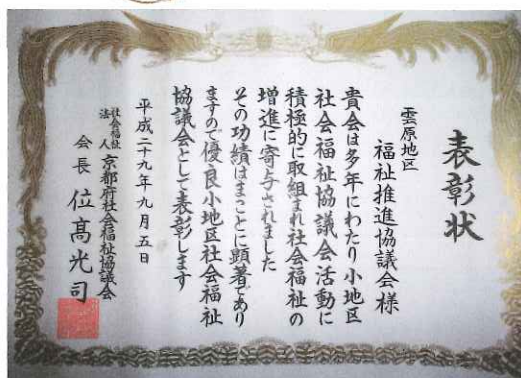 表彰状
雲原地区
福祉推進協議会様
貴会は多年にわたり小地区
社会福祉協議会活動に
積極的に取組まれ社会福祉の
増進に寄与されました
その功績はまことに顕著であり
ますので優良小地区社会福祉
協議会として表彰します
平成二十九年九月五日
社会福祉法人 京都府社会福祉協議会
会長 位髙光司